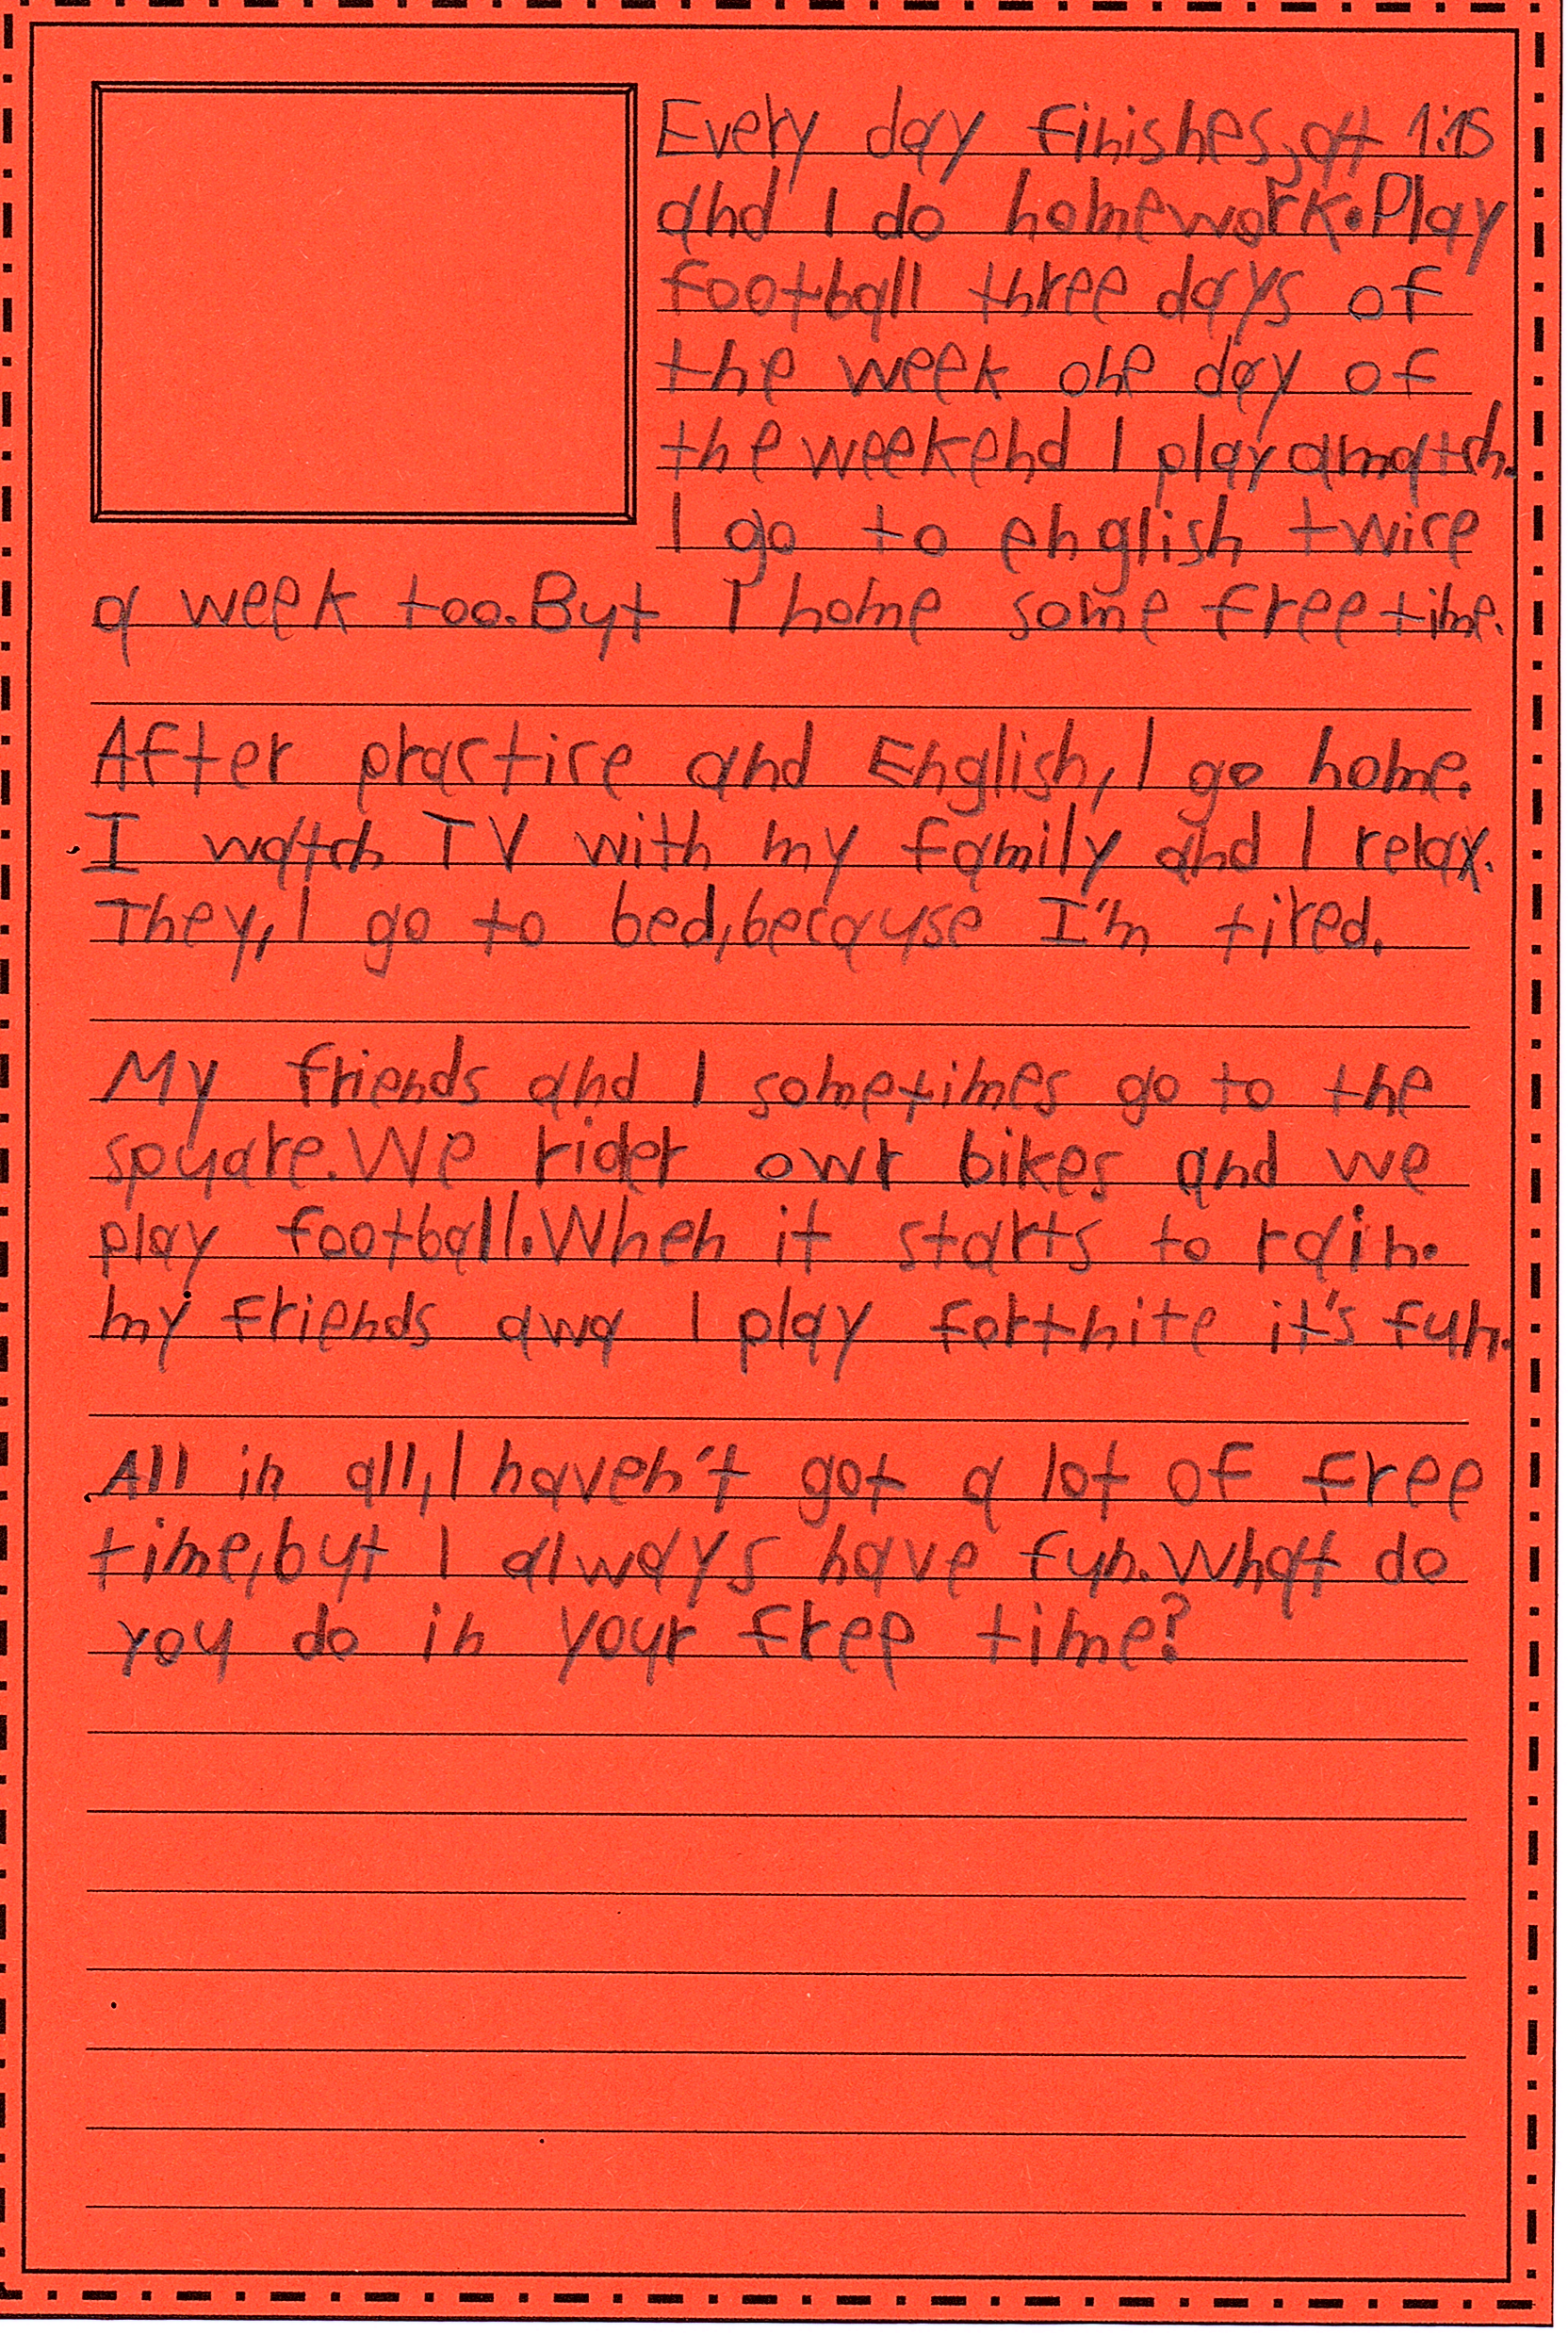 Every day finishes, at 1:15
and I do homework. Play
football three days of
the week one day of
the weekend I play a match.
I go to english twice
a week too. But I home some free time.
After practice and English, I go home.
I watch TV with my family and I relax.
They, I go to bed, because I'm tired.
My friends and I sometimes go to the
spuare. We rider owr bikes and we
play football. When it starts to rain.
my friends awd I play fortnite it's fun.
All in all, I haven't got a lot of free
time, but I always have fun. What do
you do in your free time?